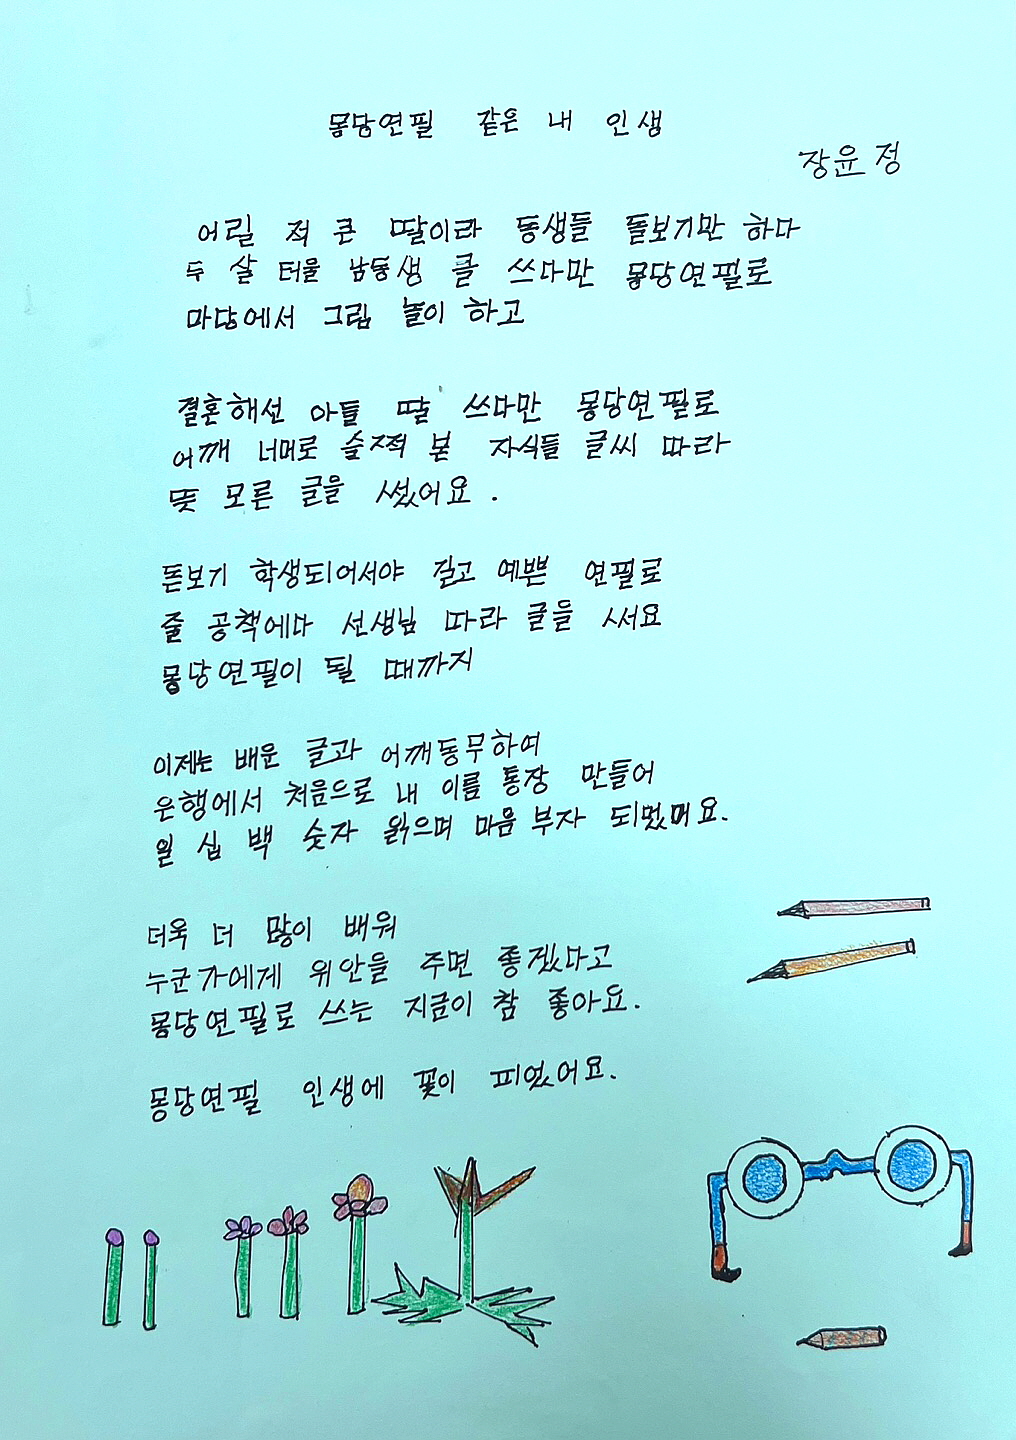 몽당연필 같은 내 인생
장윤정
어릴 적 큰 딸이라 동생들 돌보기만 하다
두 살 터울 남동생 글 쓰다만 몽당연필로
마당에서 그림 놀이 하고
결혼해선 아들 딸 쓰다만 몽당연필로
어깨 너머로 슬쩍 본 자식들 글씨 따라
뜻 모른 글을 썼어요.
돋보기 학생되어서야 길고 예쁜 연필로
줄 공책에다 선생님 따라 글을 써요
몽당연필이 될 때까지
이제는 배운 글과 어깨동무하여
은행에서 처음으로 내 이름 통장 만들어
일 십 백 숫자 읽으며 마음 부자 되었어요.
더욱 더 많이 배워
누군가에게 위안을 주면 좋겠다고
몽당연필로 쓰는 지금이 참 좋아요.
몽당연필 인생에 꽃이 피었어요.